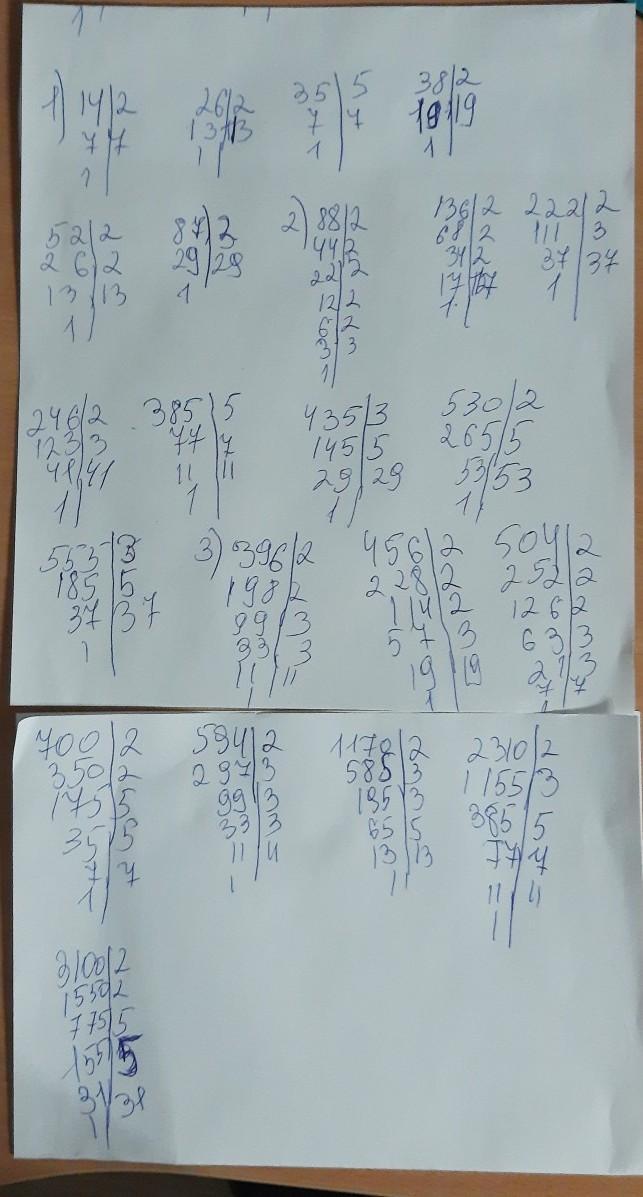 1) 14|2 26|2 35|5 38|2
7|7 13|13 7|7 19|19
1| 1| 1| 1|
52|2 87|2 2) 88|2 136|2 222|2
26|2 29|29 44|2 68|2 111|3
13|13 1 22|2 34|2 37|37
1| 12|2 17|17 1|
6|2 1|
3|3
1|
246|2 385|5 435|3 530|2
123|3 77|7 145|5 265|5
41|41 11|11 29|29 53|53
1| 1| 1| 1|
553|3 3) 396|2 456|2 504|2
185|5 198|2 228|2 252|2
37|37 99|3 114|2 126|2
1| 33|3 57|3 63|3
11|11 19|19 21|3
1| 1| 7|7
1|
700|2 594|2 1170|2 2310|2
350|2 297|3 585|3 1155|3
175|5 99|3 195|3 385|5
35|5 33|3 65|5 77|7
7|7 11|11 13|13 11|11
1| 1| 1| 1|
3100|2
1550|2
775|5
155|5
31|31
1|